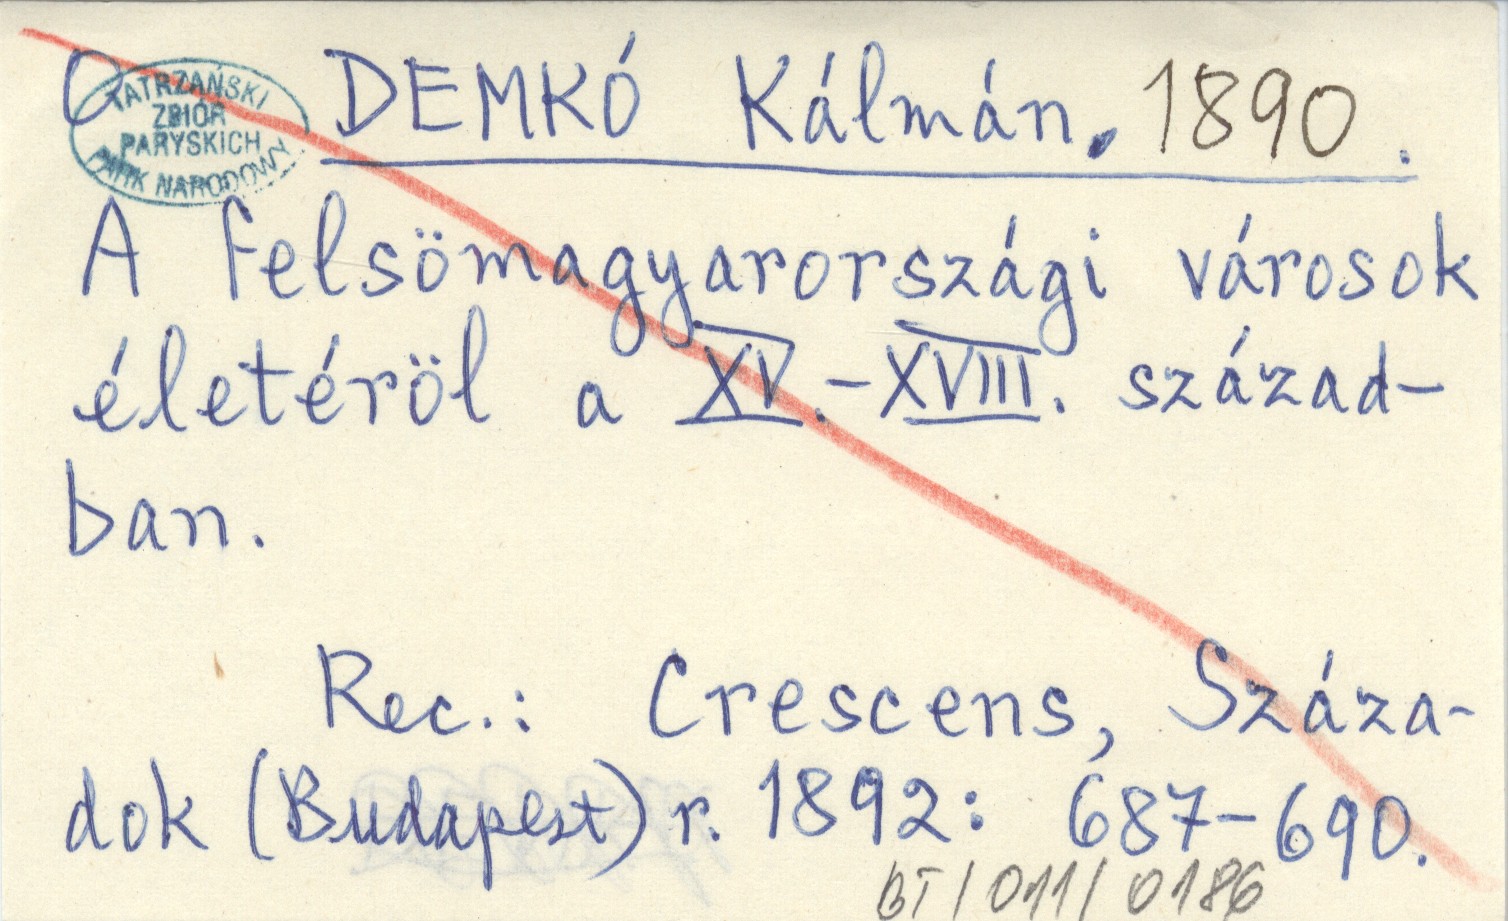 C DEMKÓ Kálmán. 1890.
TATRZAŃSKI
ZBIÓR
PARYSKICH
PARK NARODOWY
A felsömagyarországi városok
életéröl a XV.-XVIII. század-
ban.
Rec.: Crescens, Száza-
dok (Budapest) r. 1892: 687-690.
BT/011/0186